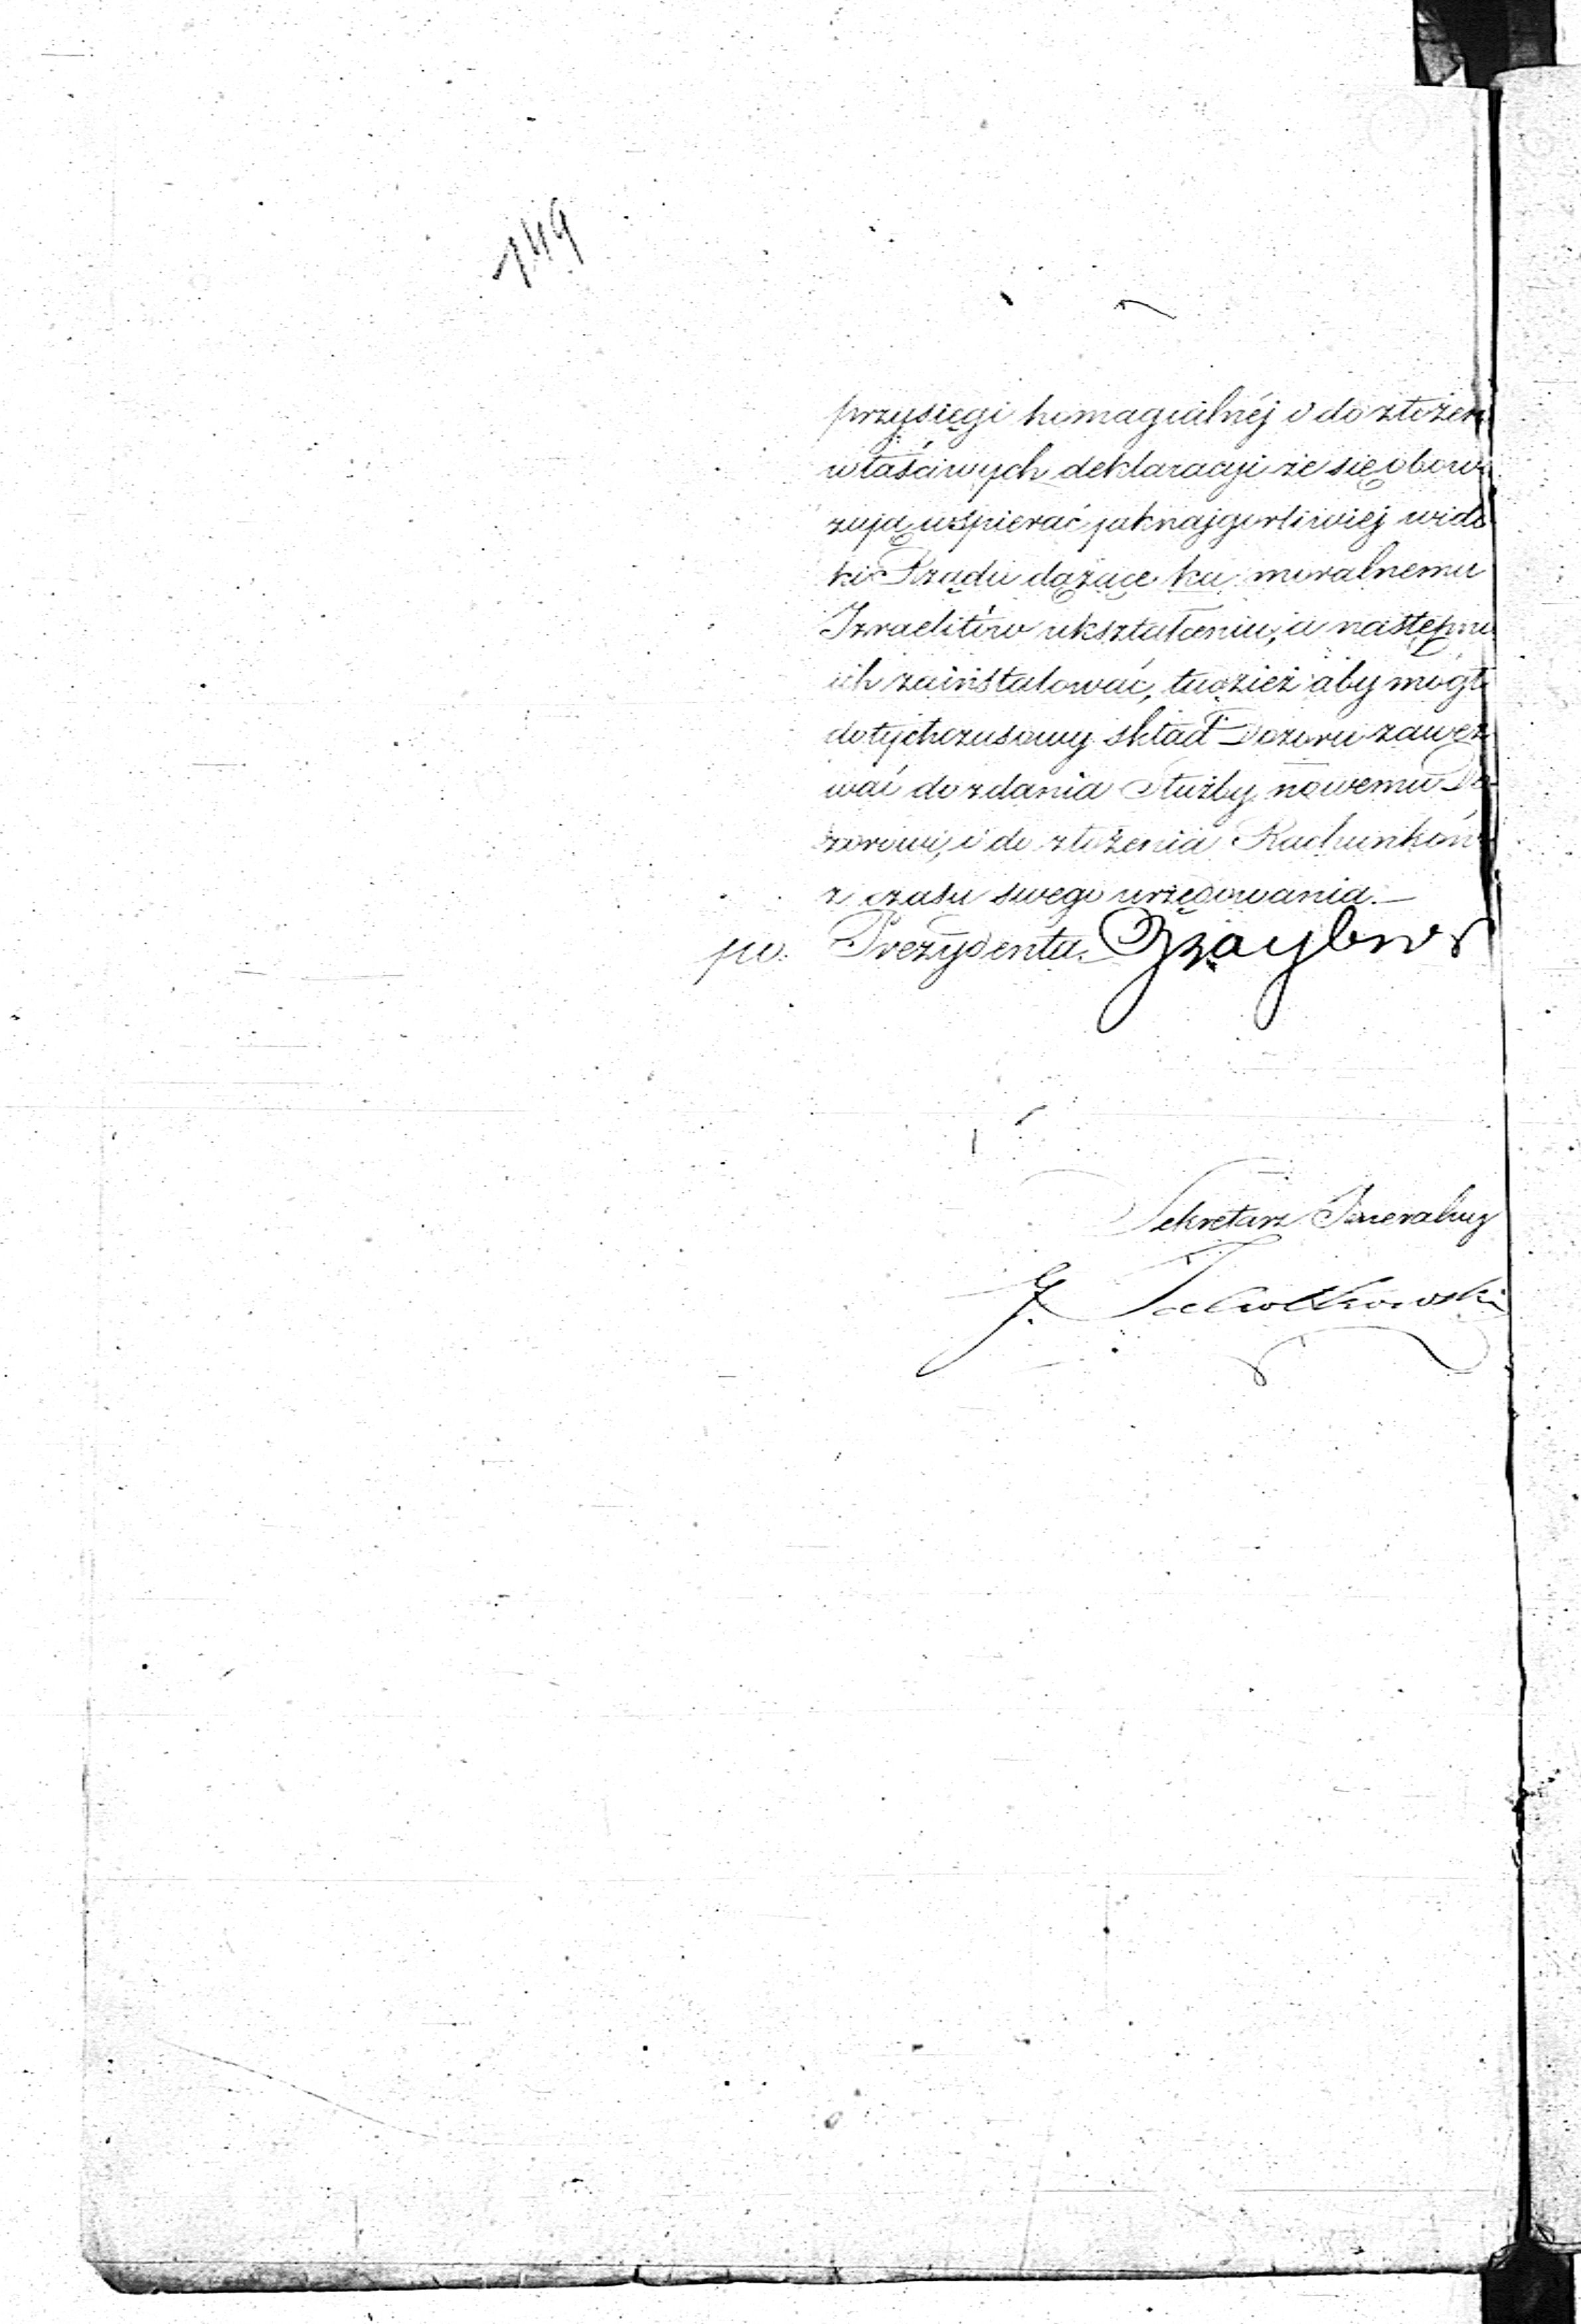 149
przysięgi homagialnéj i do złożen
właściwych deklaracyi że się obow
zują wspierać jaknajgorliwiej wido
ki Rządu dążące ku moralnemu
Izraelitów ukształceniu, a następnie
ich zainstalować, tudzież aby mógł
dotychczasowy skład Dozoru zawez
wać do zdania Służby nowemu Do
zorowi, i do złożenia Rachunków
z czasu swego urzędowania.—
po. Prezydenta.
Sekretarz Jeneralny